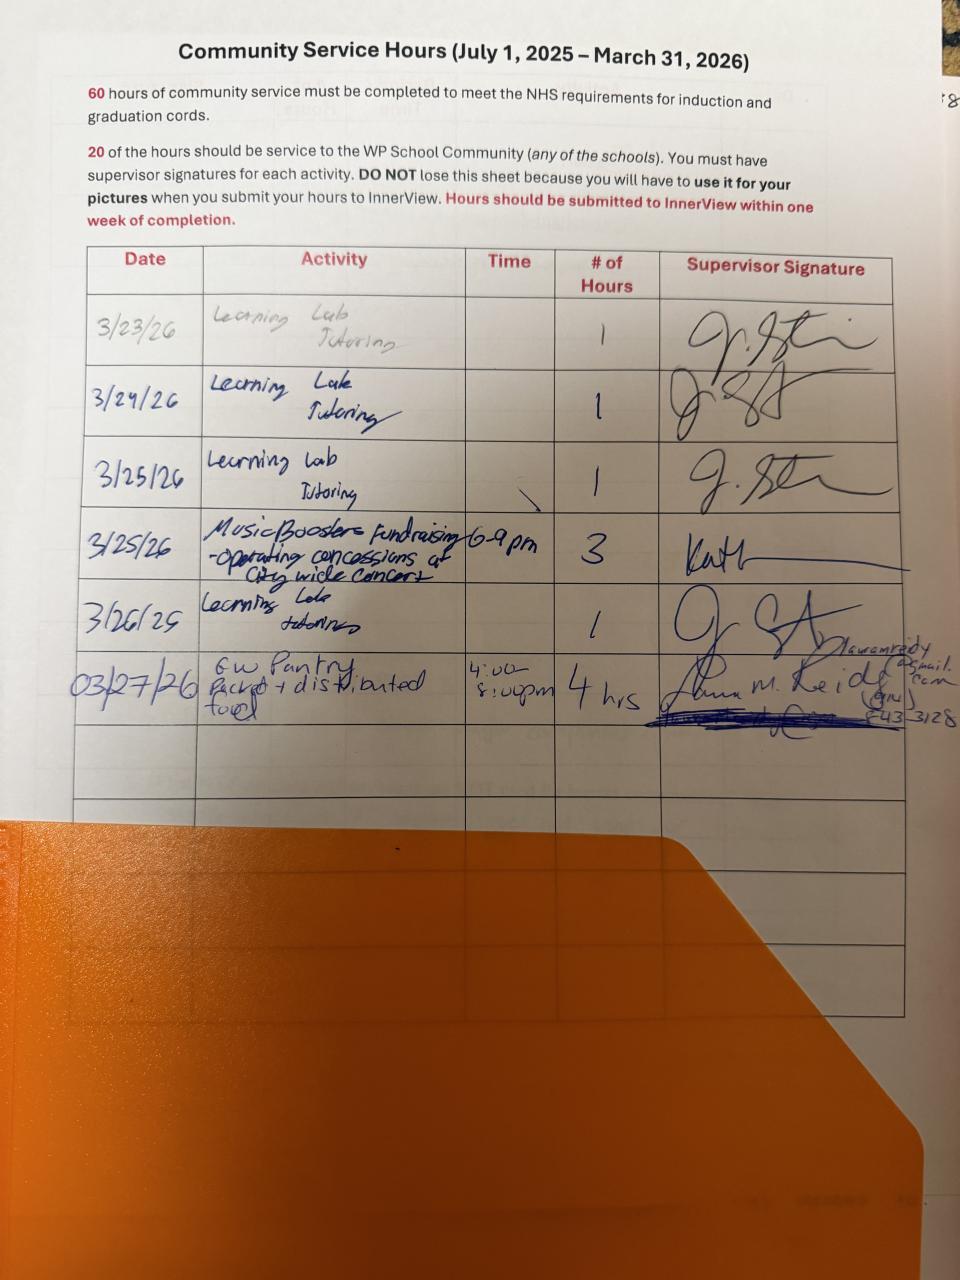 Community Service Hours (July 1, 2025 – March 31, 2026)
60 hours of community service must be completed to meet the NHS requirements for induction and
graduation cords.
20 of the hours should be service to the WP School Community (any of the schools). You must have
supervisor signatures for each activity. DO NOT lose this sheet because you will have to use it for your
pictures when you submit your hours to InnerView. Hours should be submitted to InnerView within one
week of completion.
Date Activity Time # of Hours Supervisor Signature
3/23/26 Learning Lab 1
Tutoring
3/24/26 Learning Lab 1
Tutoring
3/25/26 Learning Lab 1
Tutoring
3/25/26 Music Boosters Fundraising 6-9pm 3 Kath
-operating concessions at
City wide concert
3/26/26 Learning Lab 1
tutoring
03/27/26 GW Pantry 4:00 4 hrs M. Reidy
Packed + distributed 8:00pm
food
@gmail.
com
843-3128